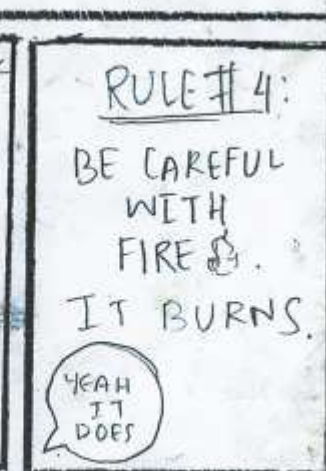 RULE # 4:
BE CAREFUL
WITH
FIRE .
IT BURNS.
YEAH
IT
DOES